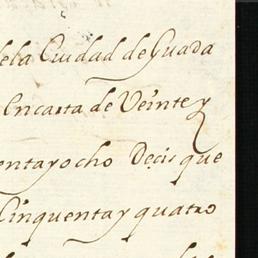 dela Ciudad de Guada
Encarta de Veinte y
entayocho Decir que
Cinquenta y quatro